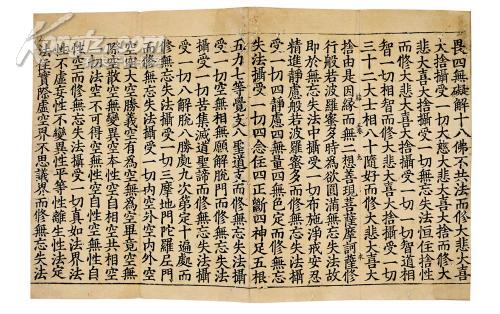 畏四無礙解十八佛不共法而修大悲大喜
大捨攝受一切大慈大悲大喜大捨而修大
悲大喜大捨攝受一切無忘失法恒住捨性
而修大悲大喜大捨攝受一切一切智道相
智一切相智而修大悲大喜大捨攝受一切
三十二大士相八十隨好而修大悲大喜大
捨由是因緣而無二想善現菩薩摩訶薩修
行般若波羅蜜多時為欲圓滿無忘失法故
即於無忘失法中攝受一切布施淨戒安忍
精進靜慮般若波羅蜜多而修無忘失法攝
受一切四靜慮四無量四無色定而修無忘
失法攝受一切四念住四正斷四神足五根
五力七等覺支八聖道支而修無忘失法攝
受一切空無相無願解脫門而修無忘失法
攝受一切苦集滅道聖諦而修無忘失法攝
受一切八解脫八勝處九次第定十遍處而
修無忘失法攝受一切三摩地門陀羅尼門
而修無忘失法攝受一切內空外空內外空
空空大空勝義空有為空無為空畢竟空無
際空散空無變異空本性空自相空共相空
一切法空不可得空無性空自性空無性自
性空而修無忘失法攝受一切真如法界法
性不虛妄性不變異性平等性離生性法定
法住實際虛空界不思議界而修無忘失法